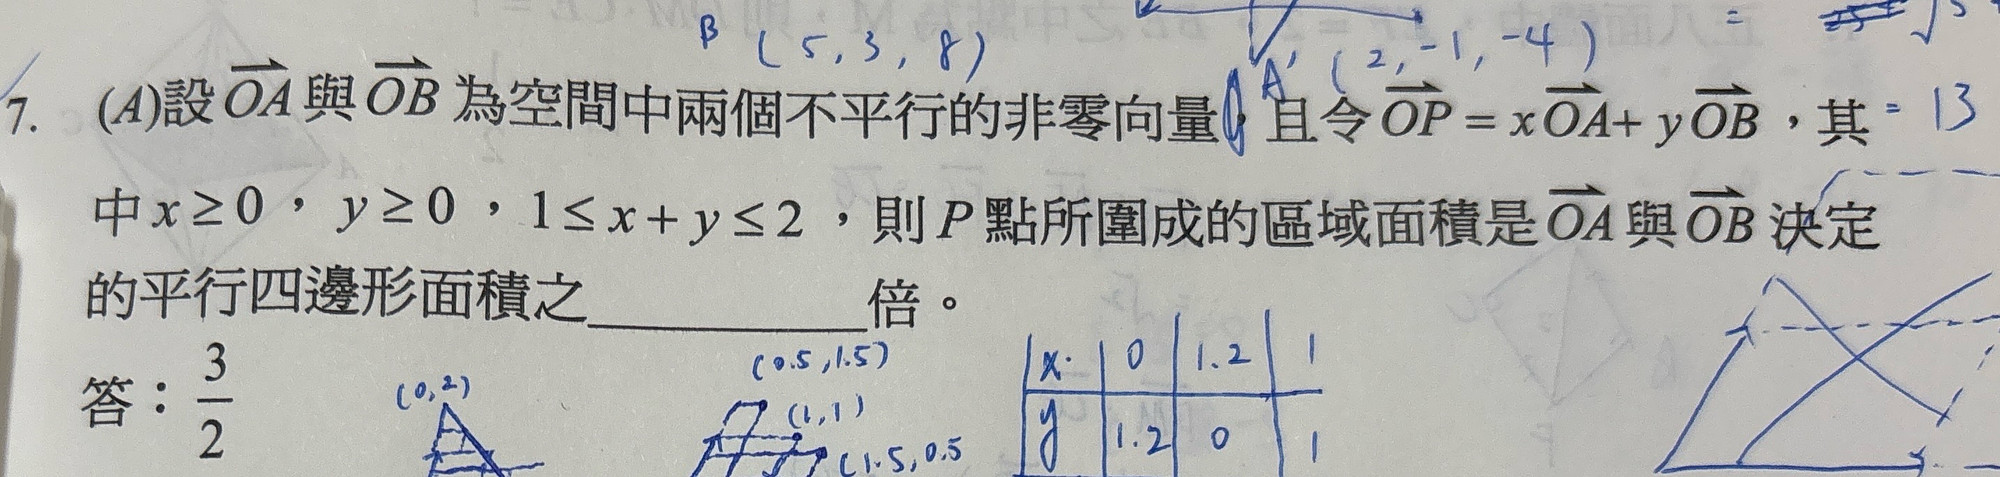 B (5,3,8) A' (2,-1,-4)
7. (A)設OA與OB為空間中兩個不平行的非零向量，且令OP=xOA+yOB，其 =13
中x≥0，y≥0，1≤x+y≤2，則P點所圍成的區域面積是OA與OB決定
的平行四邊形面積之____________倍。
答：3/2
(0,2) (0.5,1.5) (1,1) (1.5,0.5
x 0 1.2 1
y 1.2 0 1